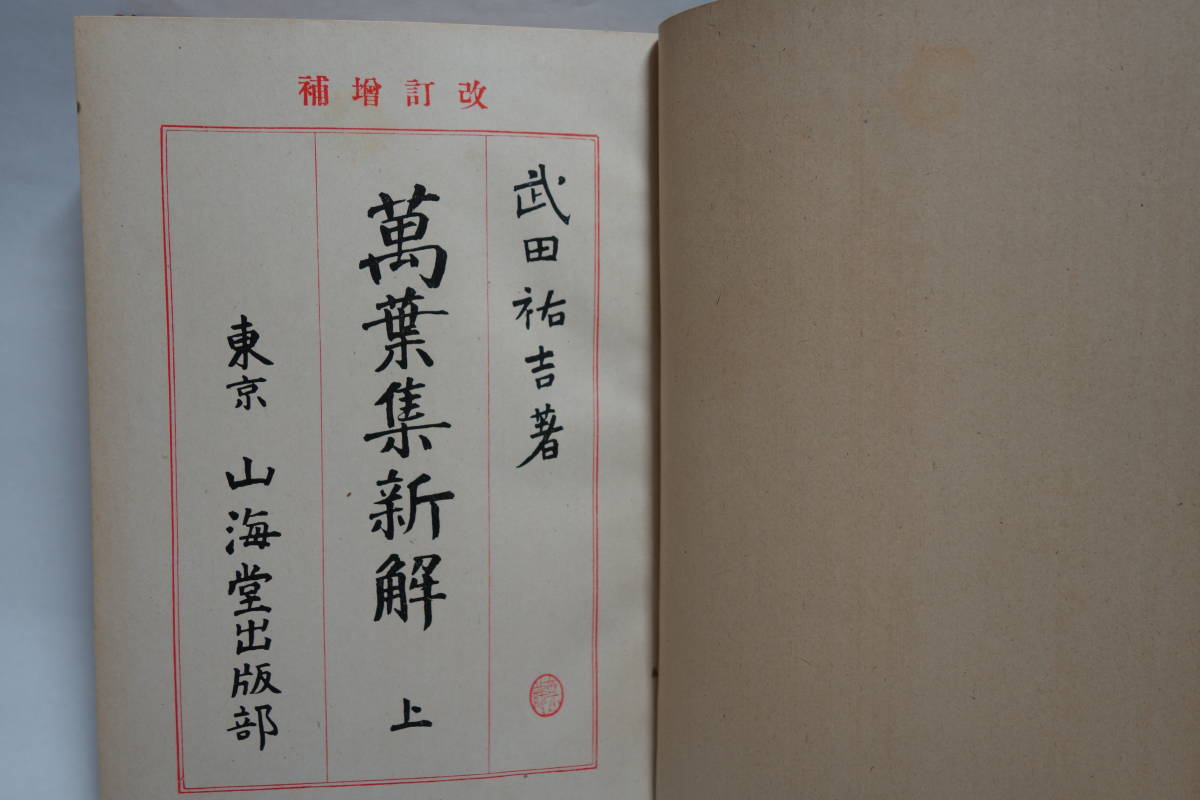 改訂增補
武田祐吉著
萬葉集新解 上
東京 山海堂出版部